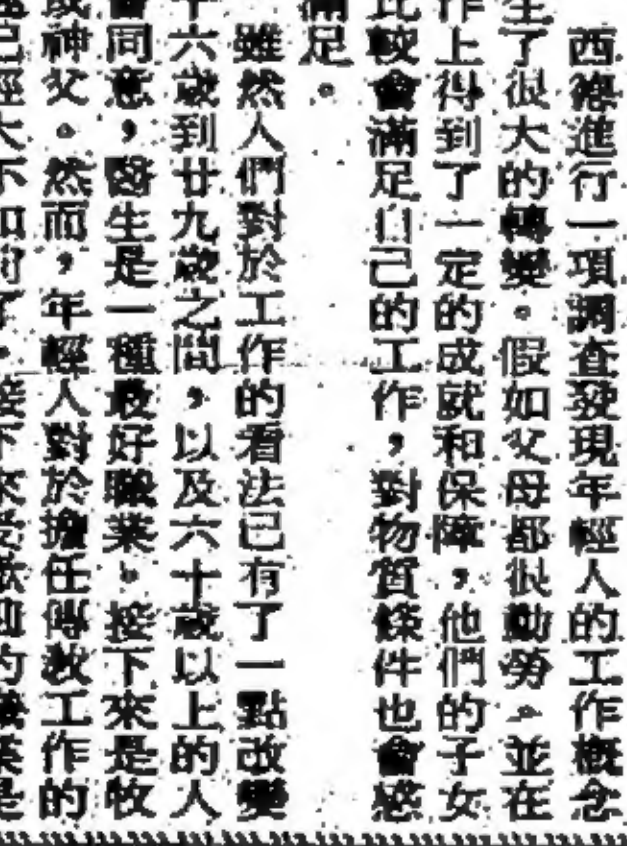 西德進行一項調查發現年輕人的工作概念
生了很大的轉變。假如父母都很勤勞,並在
作上得到了一定的成就和保障,他們的子女
比較會滿足自己的工作,對物質條件也會感
滿足。
雖然人們對於工作的看法已有了一點改變
十六歲到廿九歲之間,以及六十歲以上的人
會同意,醫生是一種最好職業。接下來是牧
或神父。然而,年輕人對於擔任傳教工作的
已經大不如前了。接下來受歡迎的職業是